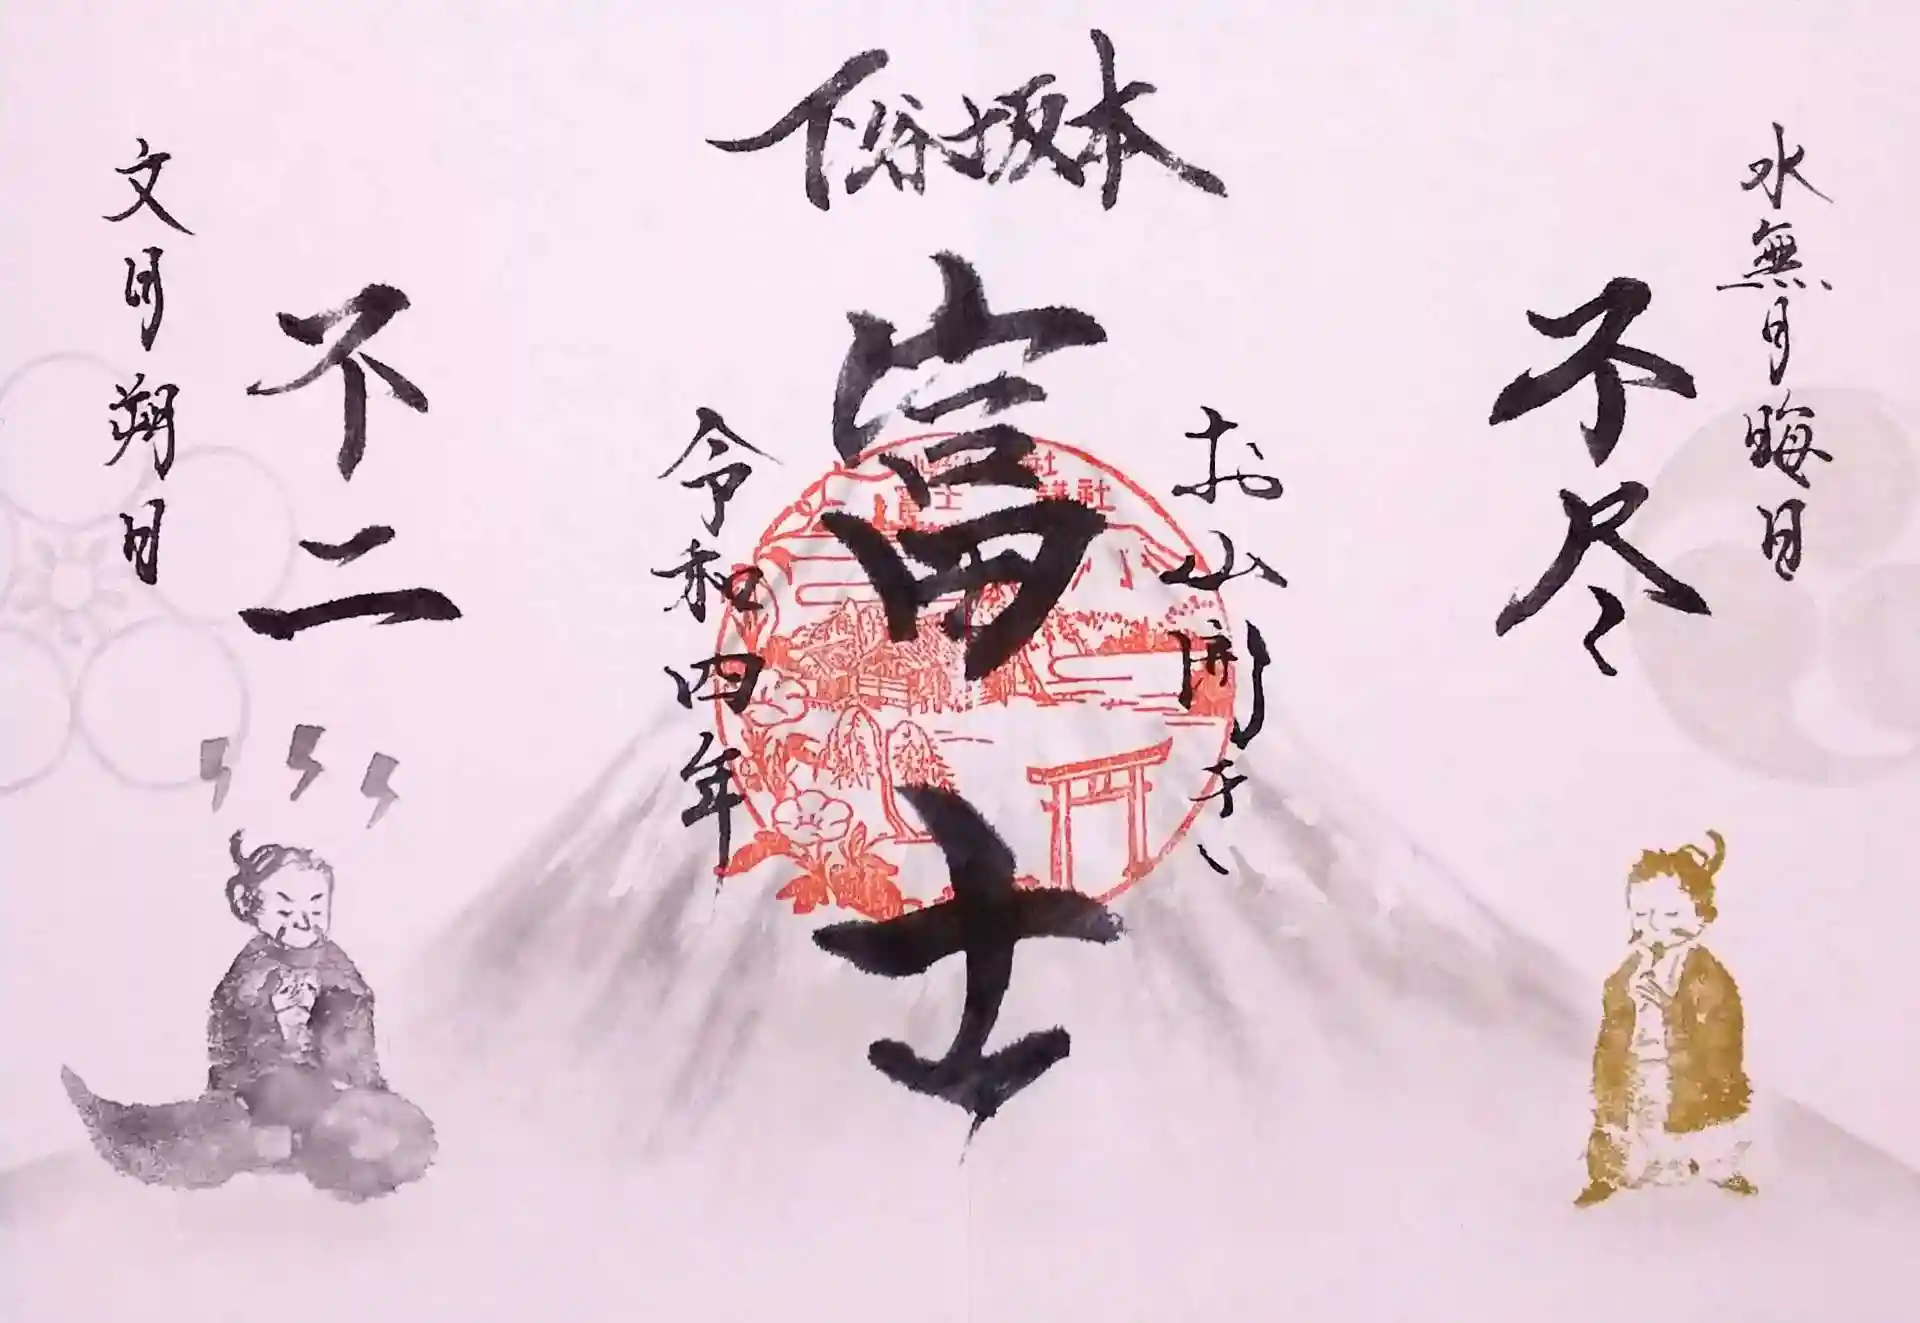 下谷坂本
水無月晦日
不尽
お山開き
富士
令和四年
不二
文月朔日
富士講社